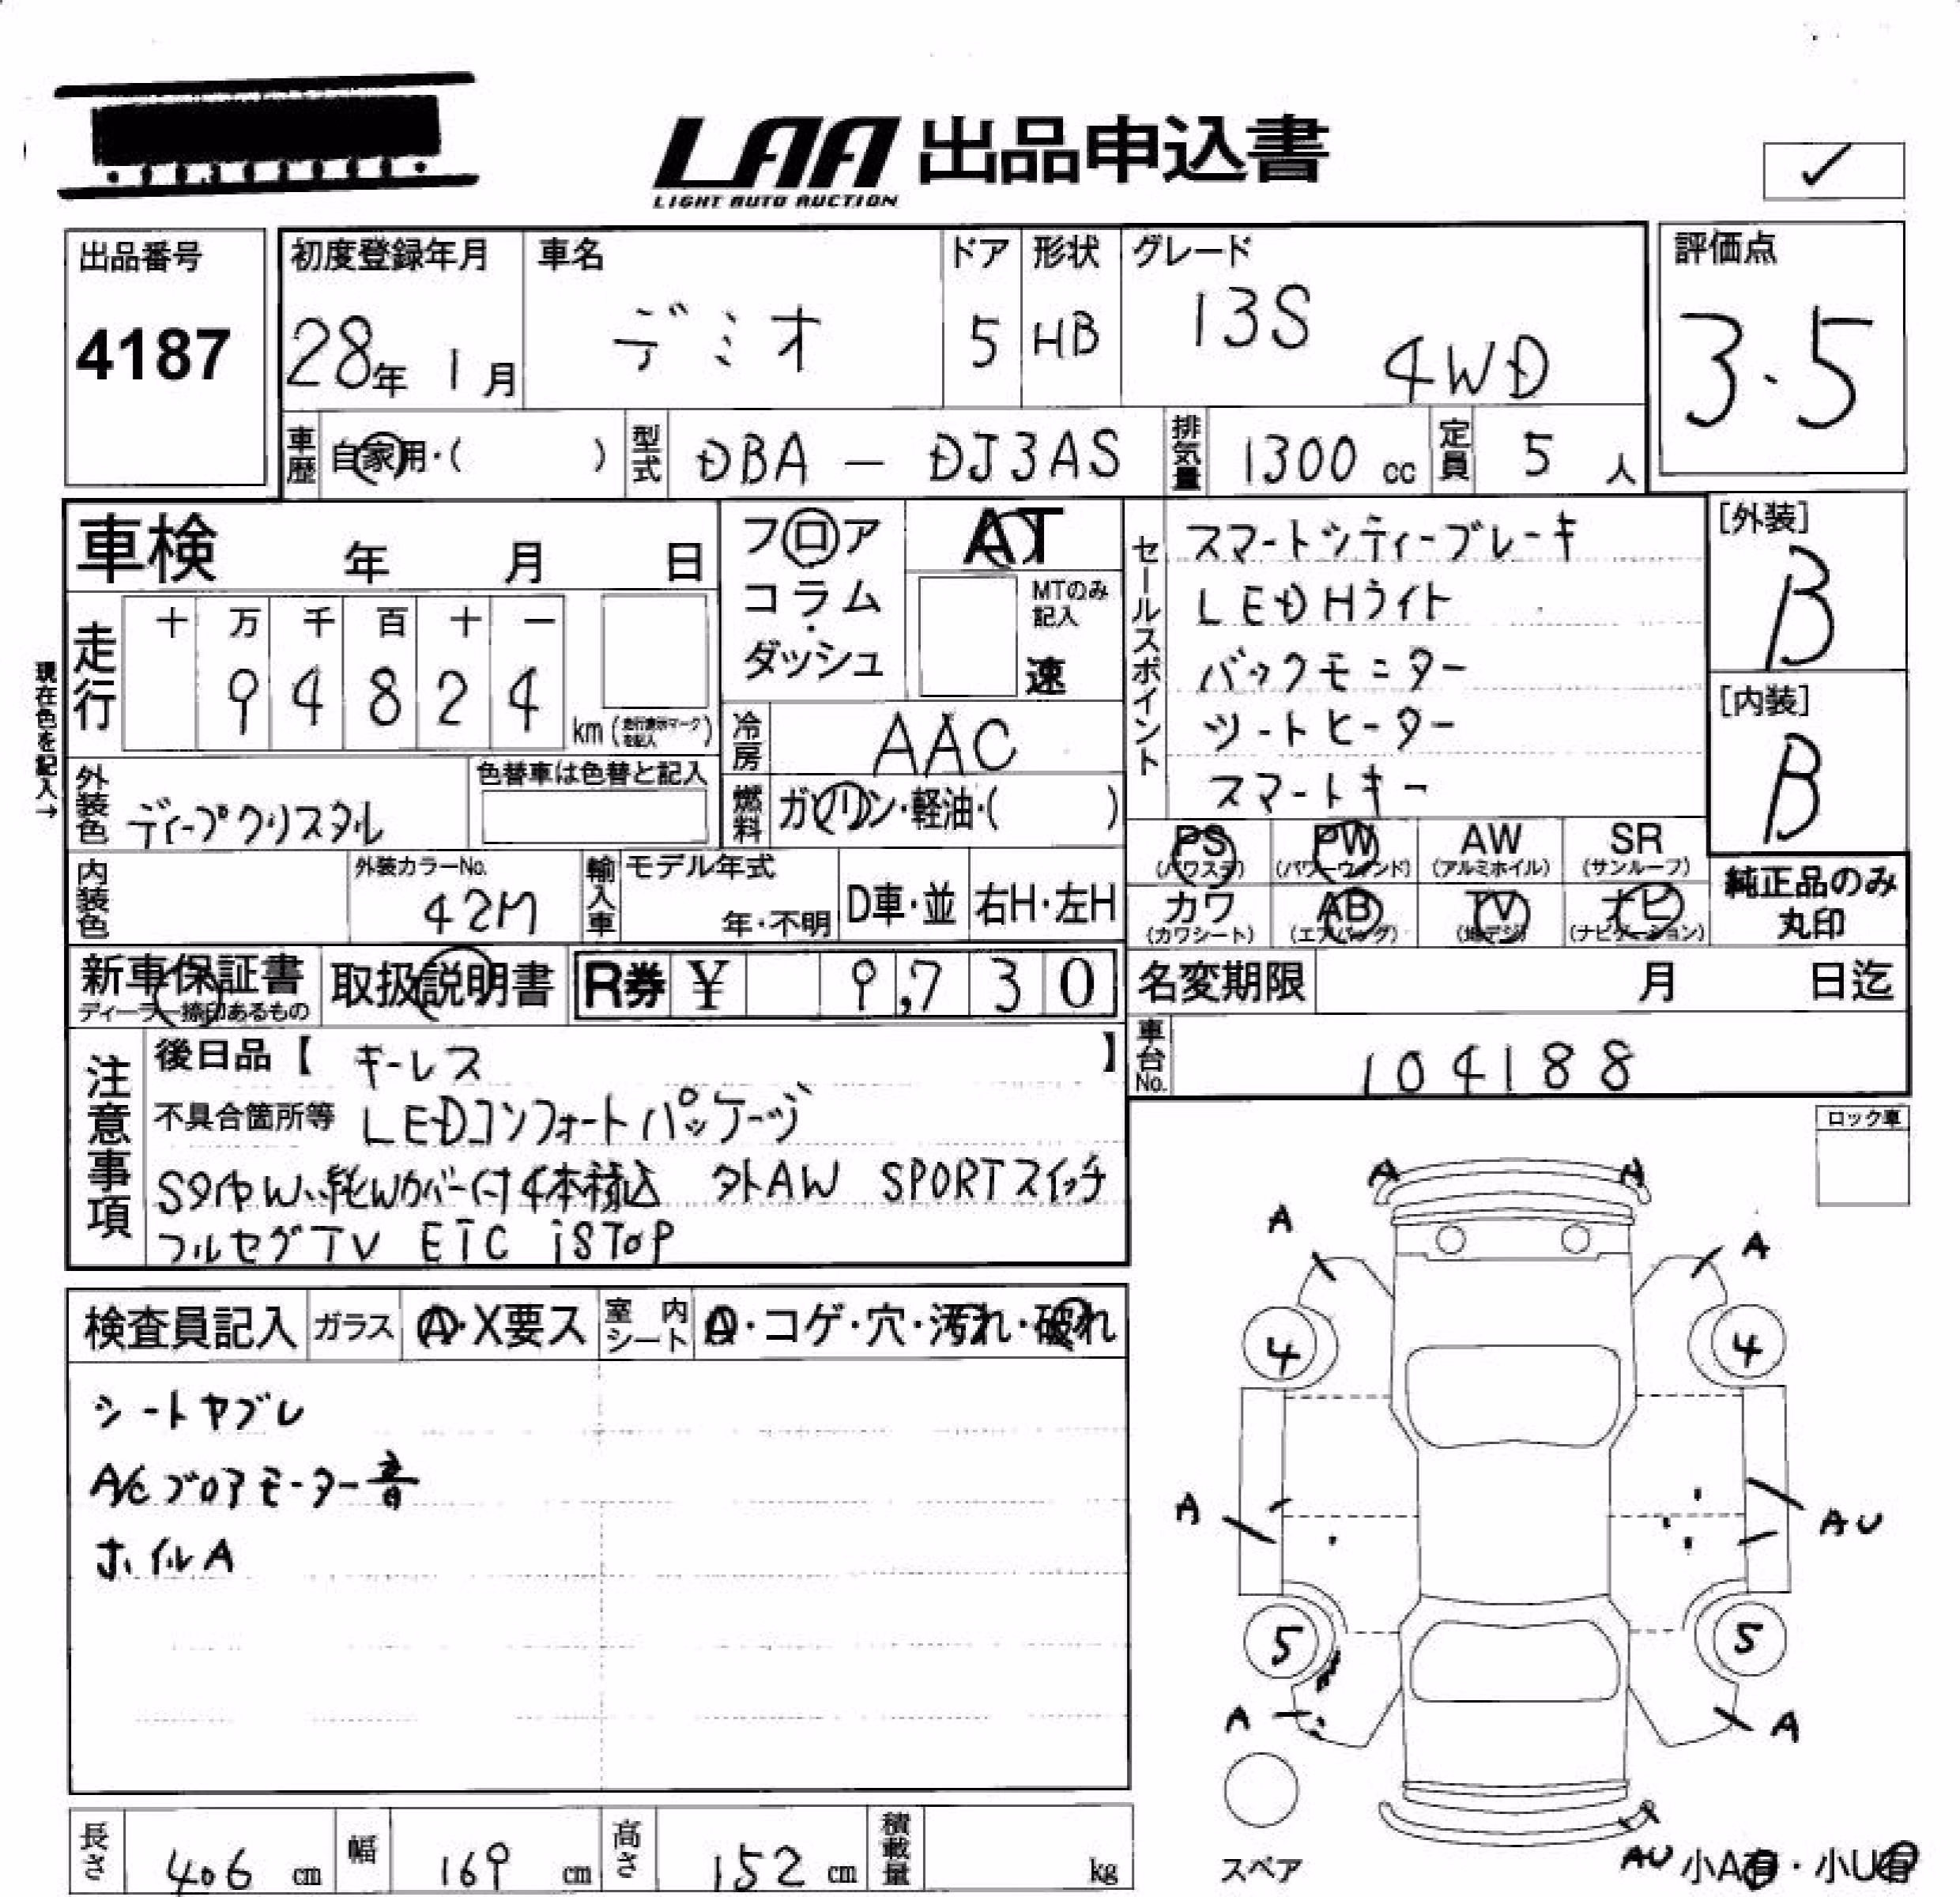 LAA 出品申込書
LIGHT AUTO AUCTION
✓
出品番号
4187
初度登録年月
28年 1月
車名
デミオ
ドア
5
形状
HB
グレード
13S
4WD
評価点
3.5
車歴
自家用・( )
型式
DBA - DJ3AS
排気量
1300 cc
定員
5 人
車検 年 月 日
フロア
コラム・
ダッシュ
AT
MTのみ記入
速
セールスポイント
スマートシティーブレーキ
LED Hライト
バックモニター
シートヒーター
スマートキー
[外装]
B
[内装]
B
現在色を記入→
走行
十 万 千 百 十 一
9 4 8 2 4
km (走行表示マークを記入)
冷房
AAC
外装色
ディープクリスタル
色替車は色替と記入
燃料
ガソリン・軽油・( )
PS
(パワステ)
PW
(パワーウィンド)
AW
(アルミホイル)
SR
(サンルーフ)
内装色
外装カラーNo.
42M
輸入車
モデル年式
年・不明
D車・並
右H・左H
カワ
(カワシート)
AB
(エアバッグ)
TV
(地デジ)
ナビ
(ナビゲーション)
純正品のみ
丸印
新車保証書
ディーラー捺印あるもの
取扱説明書
R券 ¥ 9,730
名変期限 月 日迄
車台No.
104188
注意事項
後日品【 キーレス 】
不具合箇所等 LEDコンフォートパッケージ
Sタイヤ 4本積込 外AW SPORTスイッチ
フルセグTV ETC iSTOP
ロック車
検査員記入
ガラス
A・X要ス
室内シート
A・コゲ・穴・汚れ・破れ
シートヤブレ
A/Cブロアモーター音
ホイルA
A A
A A
4 4
A AU
5 5
A A
スペア
AU 小A有・小U有
長さ
406 cm
幅
169 cm
高さ
152 cm
積載量
kg